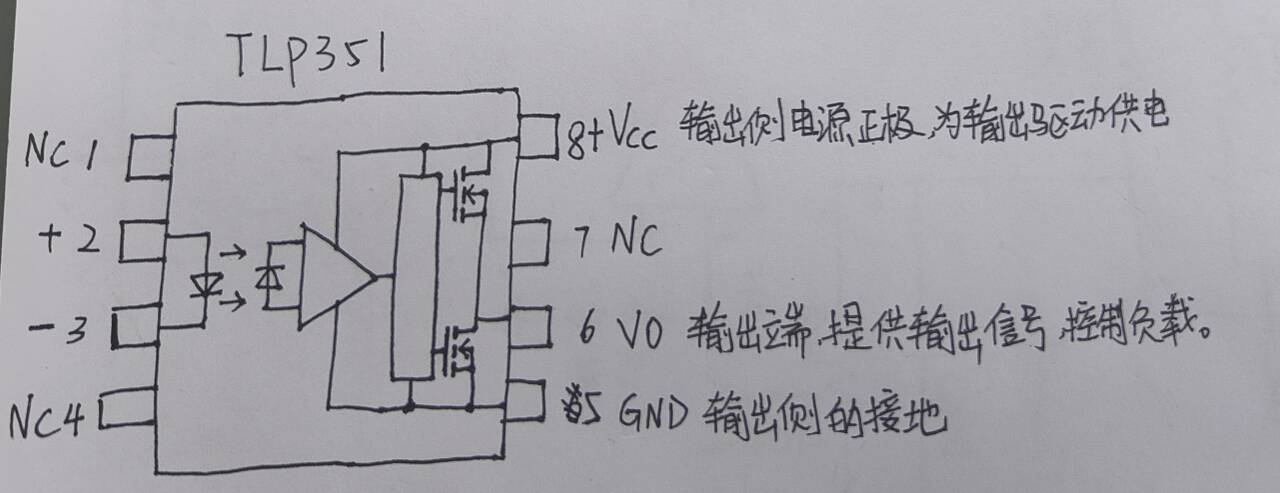 TLP351
NC 1
8+Vcc 输出侧电源正极,为输出驱动供电
+ 2
7 NC
- 3
6 VO 输出端,提供输出信号,控制负载。
NC4
5 GND 输出侧的接地